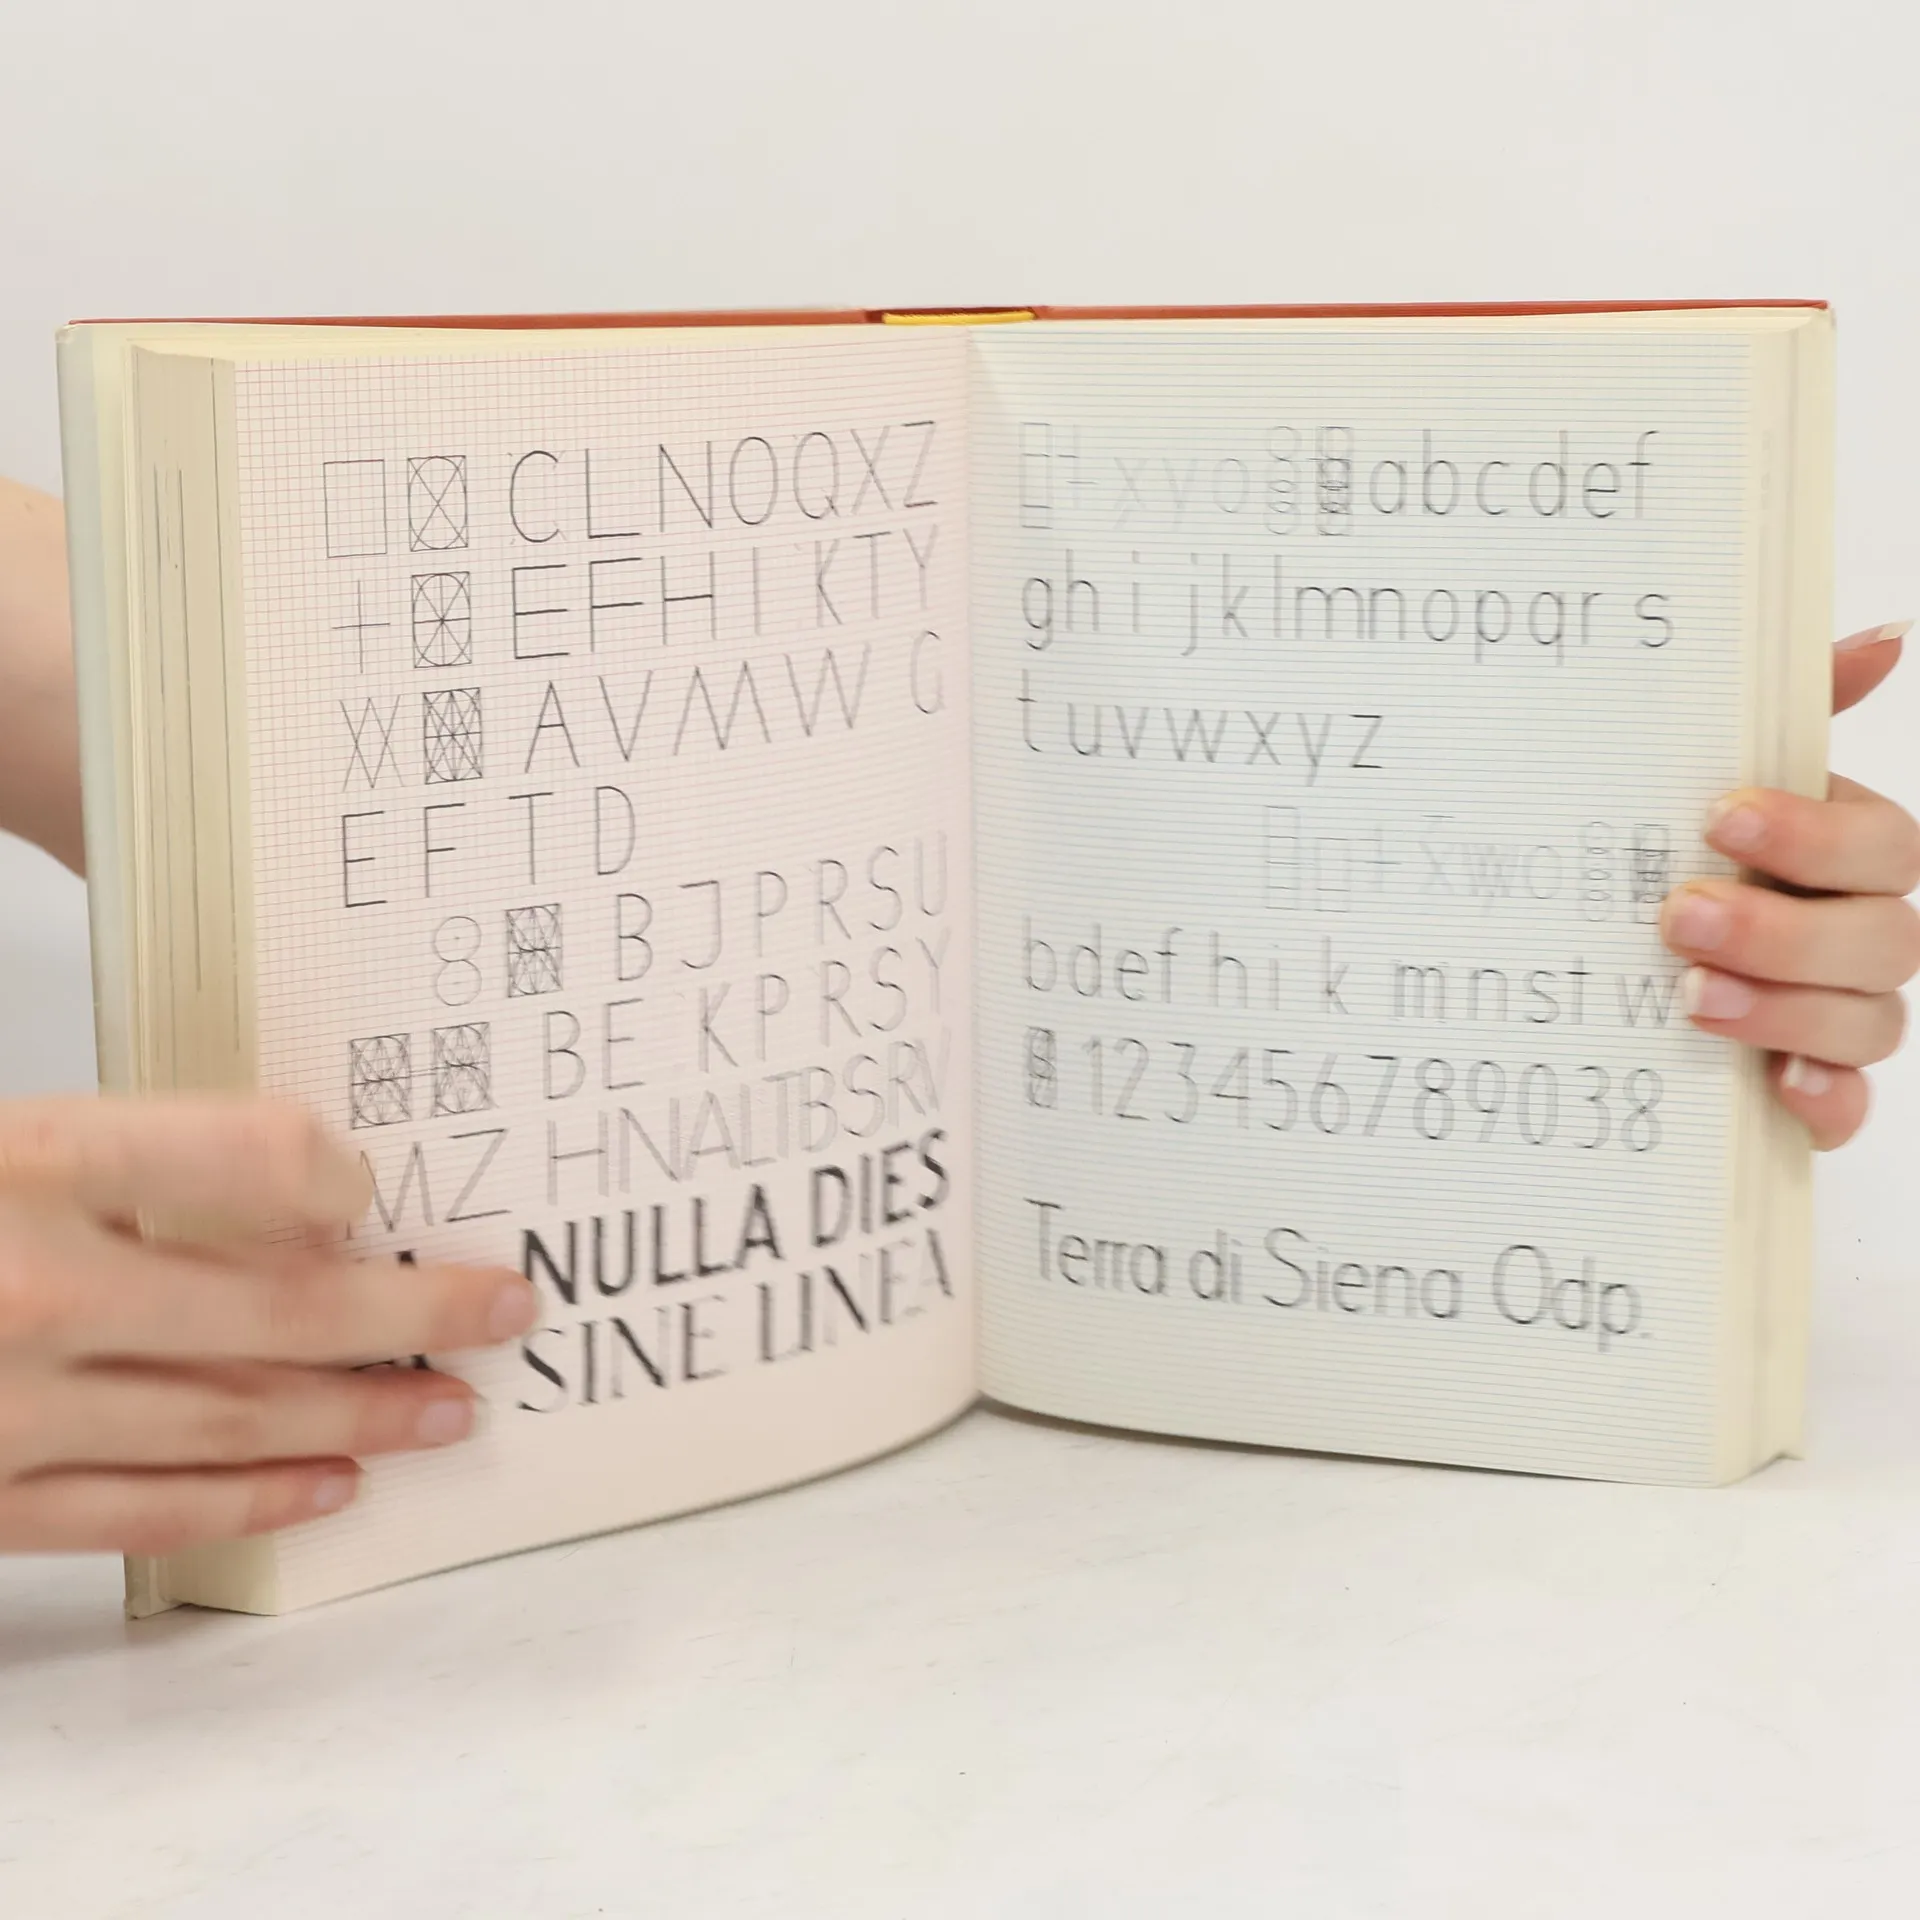 CLNOQXZ
EFHIKTY
AVMWG
EFTD
BJPRSU
BEKPRSY
MZ HNALTBSRV
NULLA DIES
SINE LINEA
xyo abcdef
ghijklmnopqrs
tuvwxyz
xwo
bdefhikmnstw
123456789038
Terra di Siena Odp.